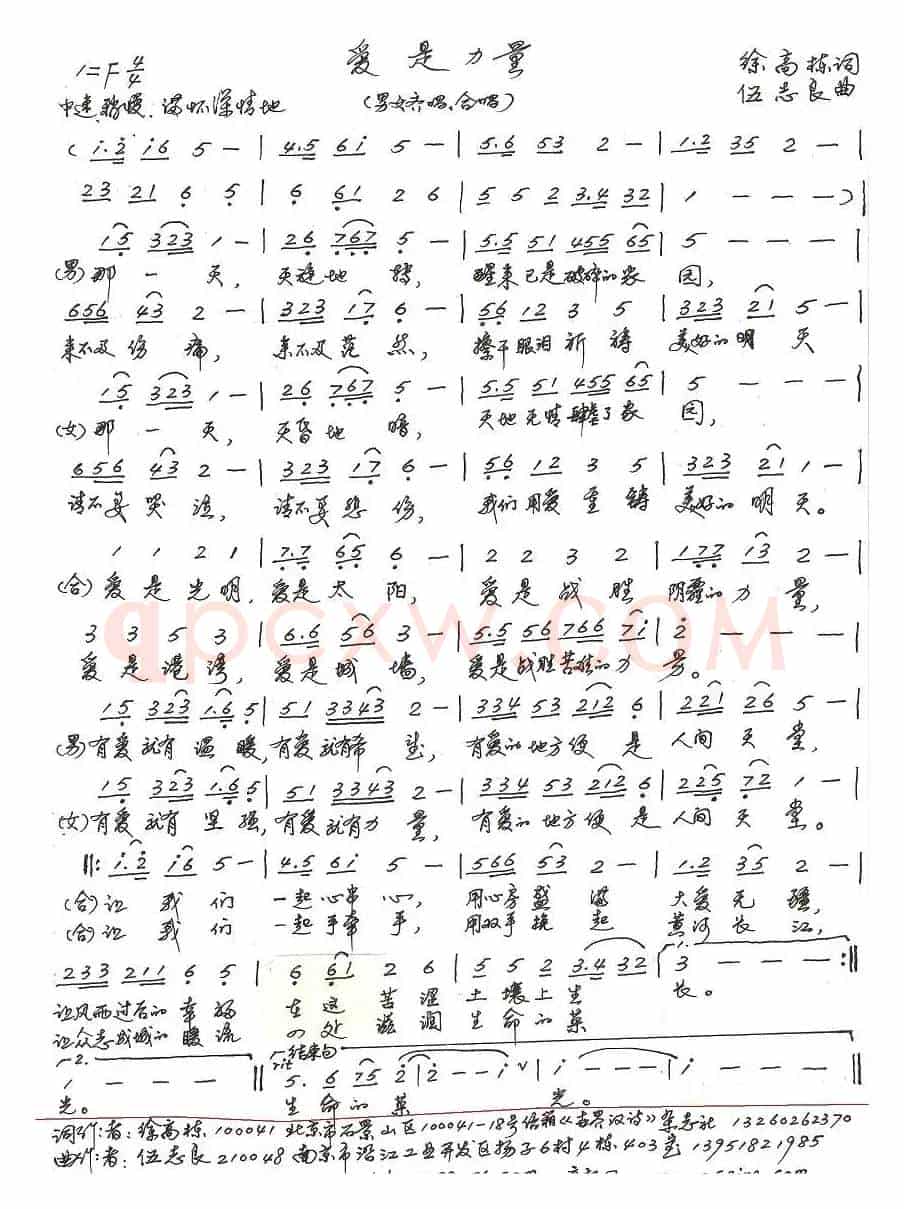 爱是力量
1=F 4/4
徐高栋词
中速稍慢、满怀深情地
(男女齐唱、合唱)
伍志良曲
( i.2 i6 5 — | 4.5 6i 5 — | 5.6 53 2 — | 1.2 35 2 — |
23 21 6 5 | 6 61 2 6 | 5 5 2 3.4 32 | 1 — — — ) |
15 323 1 — | 26 767 5 — | 5.5 51 455 65 | 5 — — — |
(男)那一天, 天旋地转, 醒来已是破碎的家园,
656 43 2 — | 323 17 6 — | 56 12 3 5 | 323 21 5 — |
来不及伤痛, 来不及茫然, 擦干眼泪祈祷美好的明天
15 323 1 — | 26 767 5 — | 5.5 51 455 65 | 5 — — — |
(女)那一天, 天昏地暗, 天地无情肆虐了家园,
656 43 2 — | 323 17 6 — | 56 12 3 5 | 323 21 1 — |
请不要哭泣, 请不要悲伤, 我们用爱重铸美好的明天。
1 1 2 1 | 7.7 65 6 — | 2 2 3 2 | 177 13 2 — |
(合)爱是光明,爱是太阳, 爱是战胜阴霾的力量,
qpcxw.com
3 3 5 3 | 6.6 56 3 — | 5.5 56 766 7i | 2 — — — |
爱是港湾,爱是城墙, 爱是战胜苦难的力量。
15 323 1.6 5 | 51 3343 2 — | 334 53 212 6 | 221 26 5 — |
(男)有爱就有温暖,有爱就有希望, 有爱的地方便是人间天堂,
15 323 1.6 5 | 51 3343 2 — | 334 53 212 6 | 225 72 1 — |
(女)有爱就有坚强,有爱就有力量, 有爱的地方便是人间天堂。
‖: i.2 i6 5 — | 4.5 6i 5 — | 566 53 2 — | 1.2 35 2 — |
(合)让我们一起心牵心, 用心房盛满大爱无疆,
(合)让我们一起手牵手, 用双手挽起黄河长江,
233 211 6 5 | 6 61 2 6 | 5 5 2 3.4 32 | 1. 3 — — — :‖
让风雨过后的幸福在这苦涩土壤上生长。
让众志成城的暖流 处滋润生命的菜
2. 1 — — — ‖ rit 结束句 5. 6 75 2 | 2 — — i ∨ | i — — — | i — — — ‖
光。 生命的菜光。
词作者:徐高栋 100041 北京市石景山区100041-18号信箱《 汉诗》杂志社 13260262370
曲作者:伍志良 210048 南京市沿江工业开发区扬子6村4栋403室 13951821985